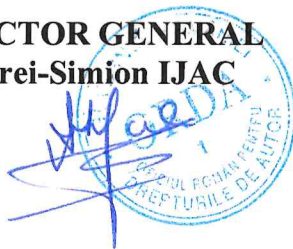 CTOR GENERAL
rei-Simion IJAC
ORDA
1
OFICIUL ROMÂN PENTRU
DREPTURILE DE AUTOR